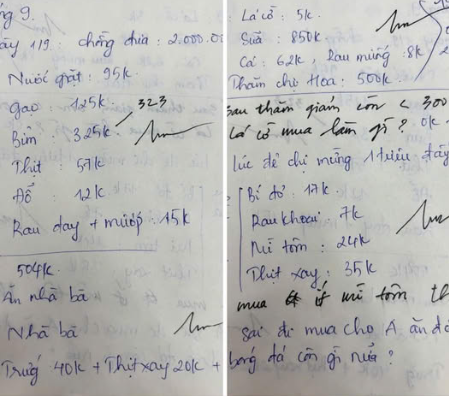 9.
1/9: chồng đưa: 2.000.00
Nước giặt: 95k
Gạo: 125k
Bỉm: 325k 323
Thịt: 57k
Đỗ: 12k
Rau đay + mướp 15k
504k.
Ăn nhà bà
Nhà bà
Trứng 40k + Thịt xay 20k +
Lá cờ: 5k
Sữa: 850k
Cá: 62k, Rau muống: 8k
Thăm chị Hoa: 500k
sau thăm giám còn < 300
Lá cờ mua làm gì? ok
lúc đẻ chị mừng 1 triệu đấy
Bí đỏ: 17k
Rau khoai 7k
Mì tôm: 24k
Thịt xay: 35k
mua ít mì tôm th
sai đi mua cho A ăn đá
bóng đá còn gì nữa?